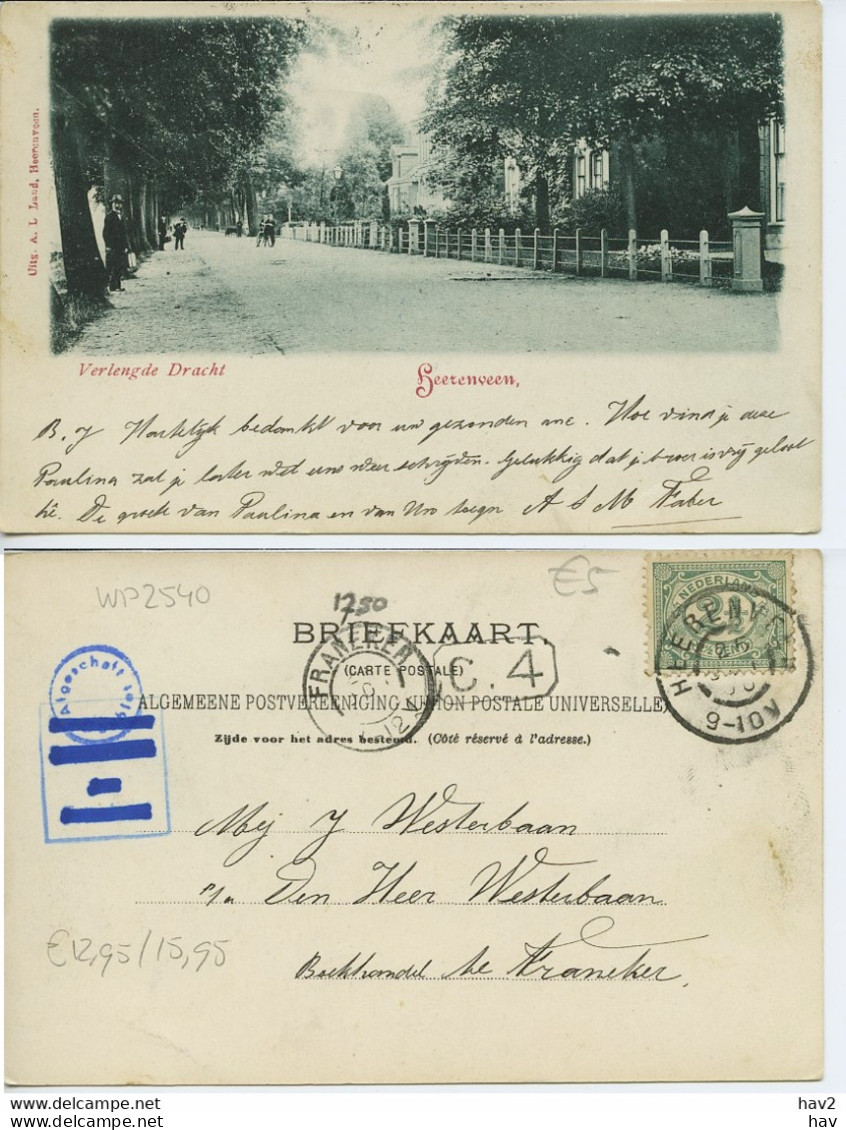 Uitg. A. L. Land, Heerenveen.
Verlengde Dracht
Heerenveen,
B. J Hartelijk bedankt voor uw gezonden anc. Hoe vind je deze
Paulina zal je later wel uns weer schrijven. Gelukkig dat j
hê. De groete van Paulina en van A S M Faber
WP2540
€5
1250
BRIEFKAART.
(CARTE POSTALE)
FRANEKER
C. 4
NEDERLAND
HEERENVEEN
9-10V
Afgeschaft
ALGEMEENE POSTVEREENIGING (UNION POSTALE UNIVERSELLE)
Zijde voor het adres bestemd. (Côté réservé à l'adresse.)
Mej J Westerbaan
p/a Den Heer Westerbaan
Boekhandel te Franeker.
€12,95/15,95
hav2
hav